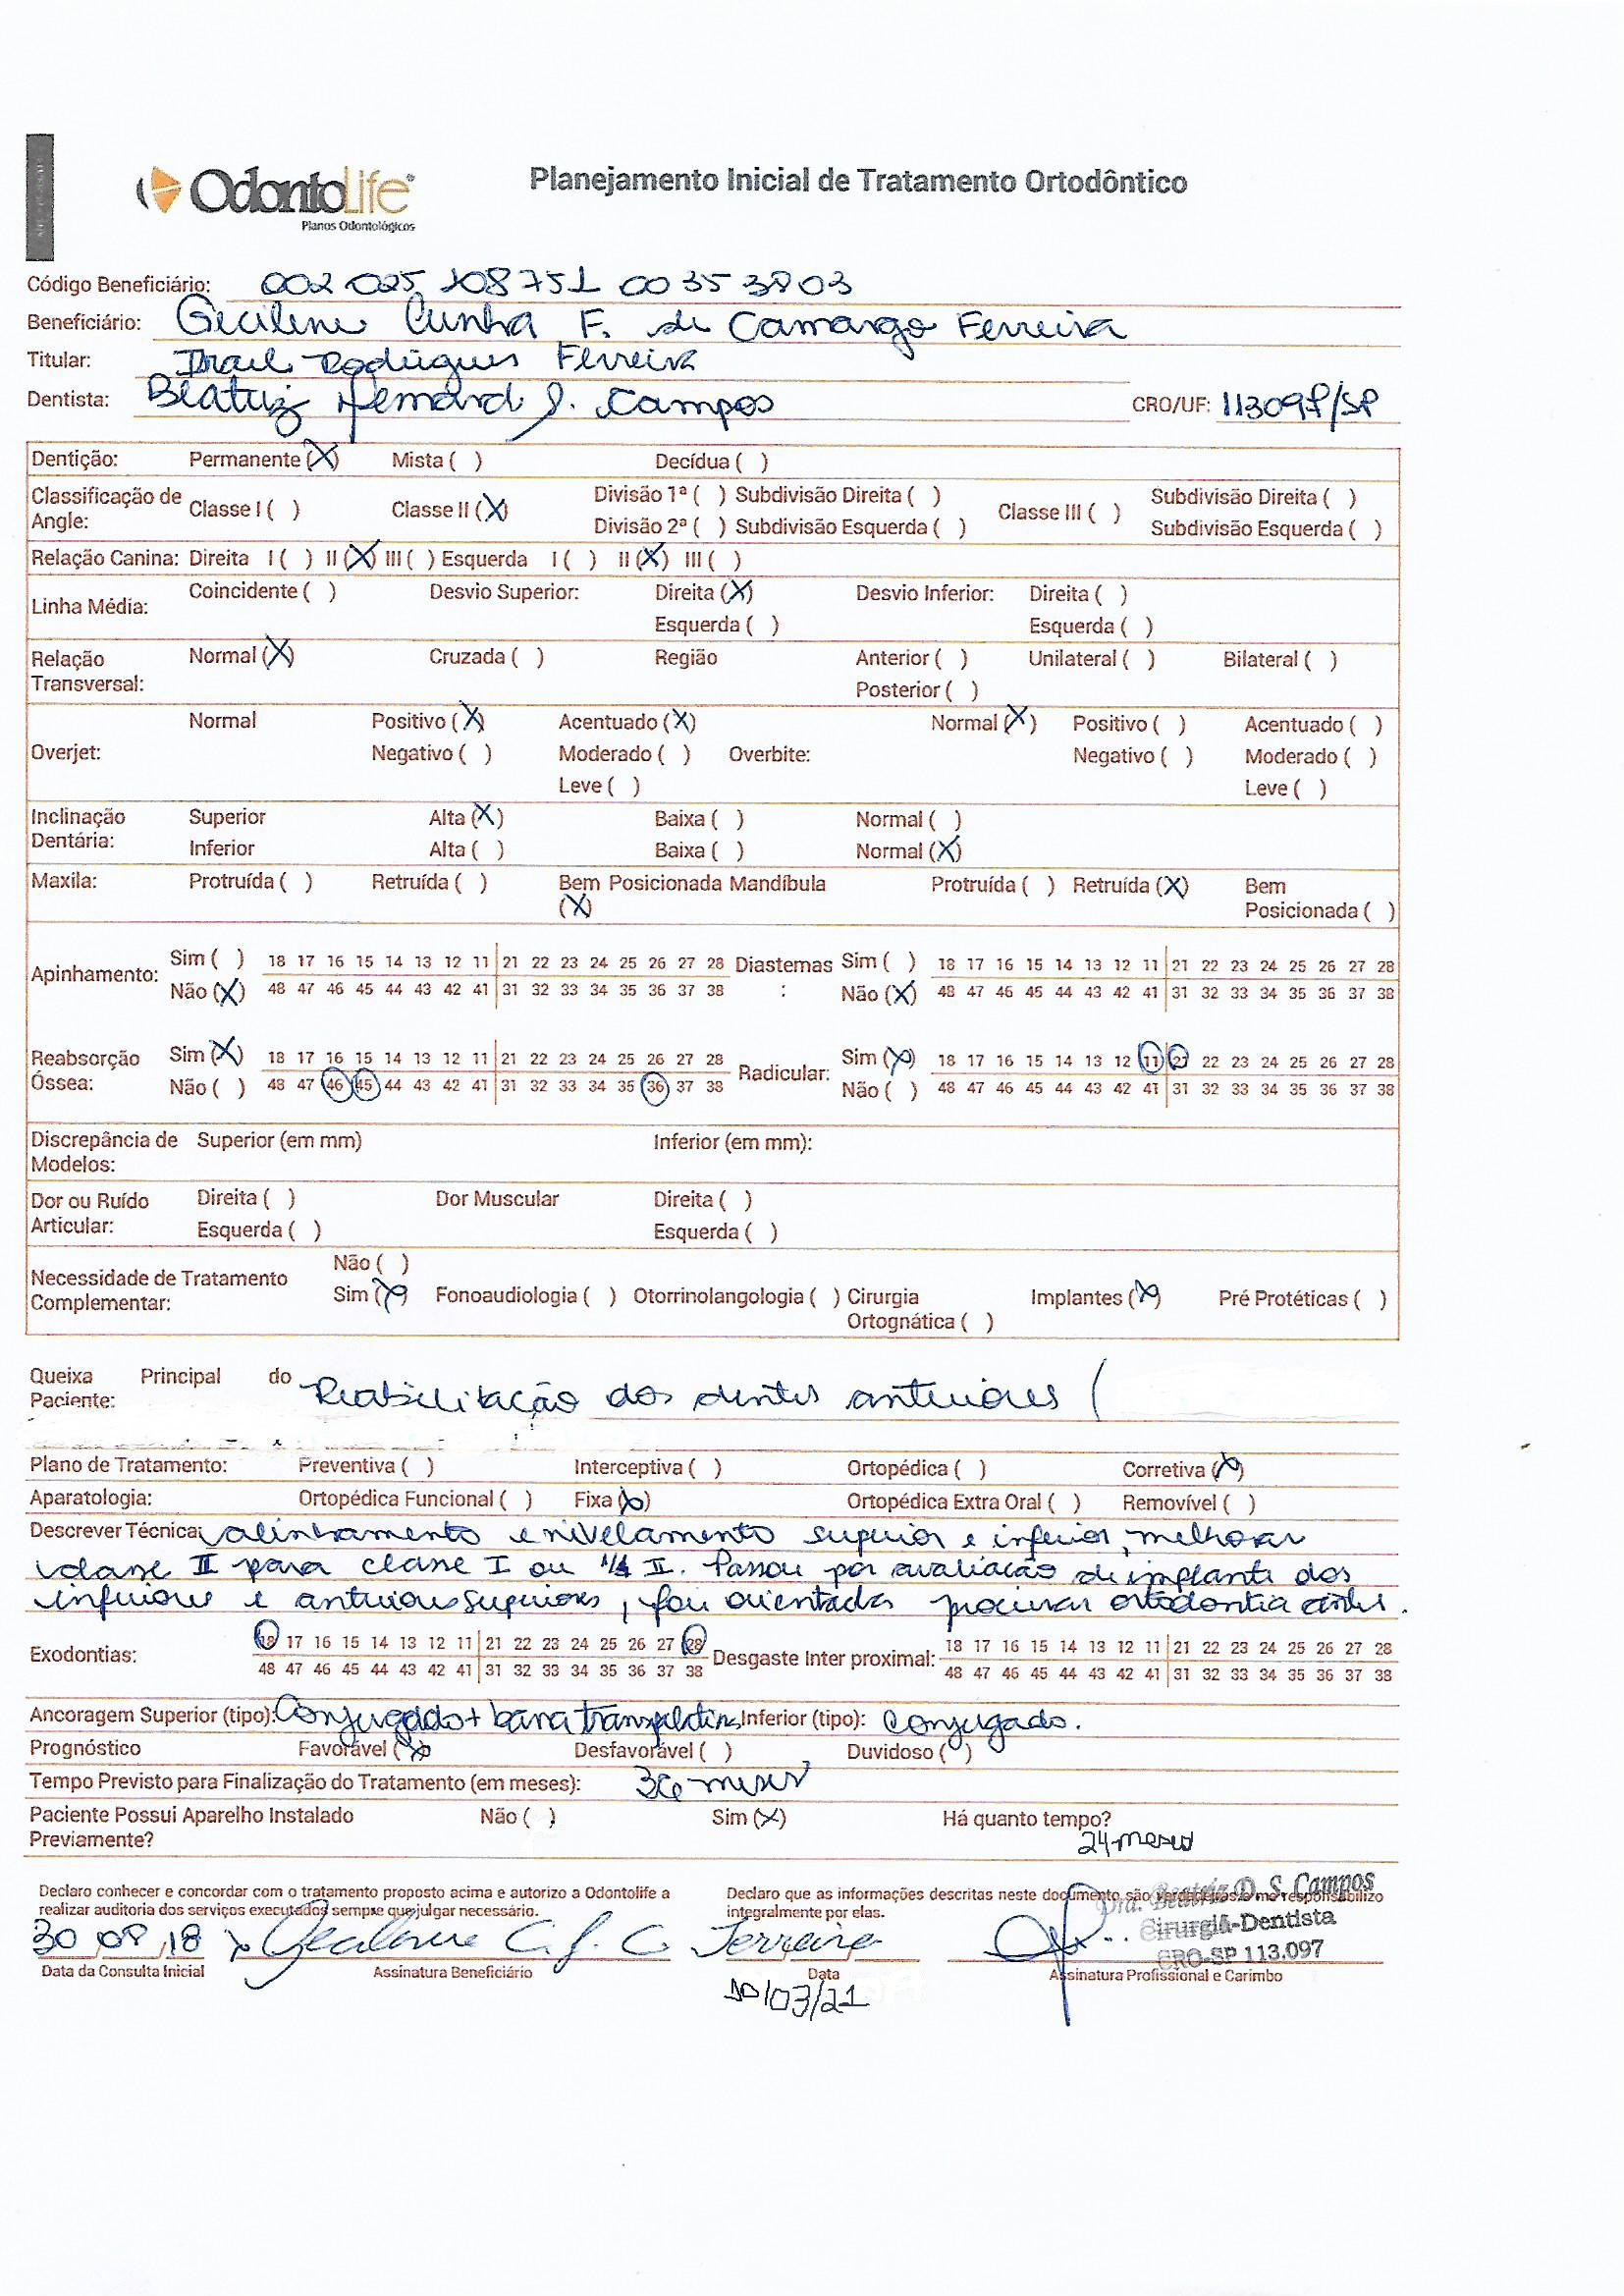 OdontoLife
Planos Odontológicos
Planejamento Inicial de Tratamento Ortodôntico
Código Beneficiário: 002 025 108751 00353803
Beneficiário: Gecilene Cunha F. de Camargo Ferreira
Titular: Israel Rodrigues Ferreira
Dentista: Beatriz D. S. Campos CRO/UF: 113097/SP
Dentição: Permanente (X) Mista ( ) Decídua ( )
Classificação de Angle: Classe I ( ) Classe II (X) Divisão 1ª ( ) Subdivisão Direita ( ) Classe III ( ) Subdivisão Direita ( )
Divisão 2ª ( ) Subdivisão Esquerda ( ) Subdivisão Esquerda ( )
Relação Canina: Direita I ( ) II (X) III ( ) Esquerda I ( ) II (X) III ( )
Linha Média: Coincidente ( ) Desvio Superior: Direita (X) Desvio Inferior: Direita ( )
Esquerda ( ) Esquerda ( )
Relação Transversal: Normal (X) Cruzada ( ) Região Anterior ( ) Unilateral ( ) Bilateral ( )
Posterior ( )
Normal Positivo (X) Acentuado (X) Normal (X) Positivo ( ) Acentuado ( )
Overjet: Negativo ( ) Moderado ( ) Overbite: Negativo ( ) Moderado ( )
Leve ( ) Leve ( )
Inclinação Dentária: Superior Alta (X) Baixa ( ) Normal ( )
Inferior Alta ( ) Baixa ( ) Normal (X)
Maxila: Protruída ( ) Retruída ( ) Bem Posicionada (X) Mandíbula Protruída ( ) Retruída (X) Bem Posicionada ( )
Apinhamento: Sim ( ) 18 17 16 15 14 13 12 11 21 22 23 24 25 26 27 28 Diastemas: Sim ( ) 18 17 16 15 14 13 12 11 21 22 23 24 25 26 27 28
Não (X) 48 47 46 45 44 43 42 41 31 32 33 34 35 36 37 38 Não (X) 48 47 46 45 44 43 42 41 31 32 33 34 35 36 37 38
Reabsorção Óssea: Sim (X) 18 17 16 15 14 13 12 11 21 22 23 24 25 26 27 28 Radicular: Sim (X) 18 17 16 15 14 13 12 11 21 22 23 24 25 26 27 28
Não ( ) 48 47 46 45 44 43 42 41 31 32 33 34 35 36 37 38 Não ( ) 48 47 46 45 44 43 42 41 31 32 33 34 35 36 37 38
Discrepância de Modelos: Superior (em mm) Inferior (em mm):
Dor ou Ruído Articular: Direita ( ) Dor Muscular Direita ( )
Esquerda ( ) Esquerda ( )
Necessidade de Tratamento Complementar: Não ( )
Sim (X) Fonoaudiologia ( ) Otorrinolangologia ( ) Cirurgia Ortognática ( ) Implantes (X) Pré Protéticas ( )
Queixa Principal do Paciente: Reabilitação dos dentes anteriores (
Plano de Tratamento: Preventiva ( ) Interceptiva ( ) Ortopédica ( ) Corretiva (X)
Aparatologia: Ortopédica Funcional ( ) Fixa (X) Ortopédica Extra Oral ( ) Removível ( )
Descrever Técnica: alinhamento e nivelamento superior e inferior, melhorar
classe II para classe I ou 1/4 II. Passou por avaliação de implante dos
inferiores e anteriores superiores, foi orientada procurar ortodontia antes.
Exodontias: 18 17 16 15 14 13 12 11 21 22 23 24 25 26 27 28 Desgaste Inter proximal: 18 17 16 15 14 13 12 11 21 22 23 24 25 26 27 28
48 47 46 45 44 43 42 41 31 32 33 34 35 36 37 38 48 47 46 45 44 43 42 41 31 32 33 34 35 36 37 38
Ancoragem Superior (tipo): Conjugado + barra transpalatina Inferior (tipo): Conjugado.
Prognóstico Favorável (X) Desfavorável ( ) Duvidoso ( )
Tempo Previsto para Finalização do Tratamento (em meses): 36 meses
Paciente Possui Aparelho Instalado Previamente? Não ( ) Sim (X) Há quanto tempo?
24 meses
Declaro conhecer e concordar com o tratamento proposto acima e autorizo a Odontolife a realizar auditoria dos serviços executados sempre que julgar necessário.
Declaro que as informações descritas neste documento são verdadeiras e me responsabilizo integralmente por elas.
Dra. Beatriz D. S. Campos
Cirurgiã-Dentista
CRO-SP 113.097
30 08 18 Gecilene C. F. C. Ferreira
Data da Consulta Inicial Assinatura Beneficiário Data Assinatura Profissional e Carimbo
10/03/21